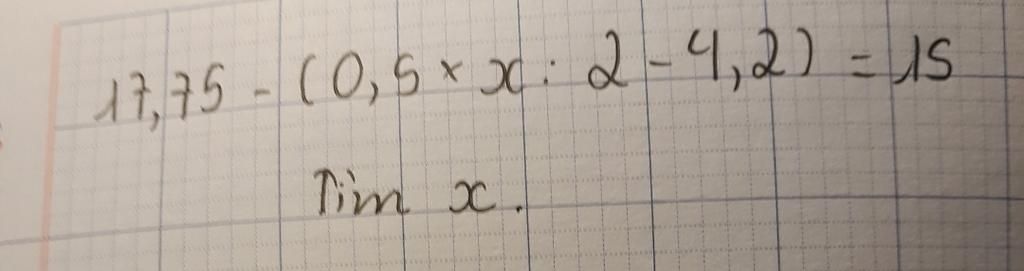 17,75 - (0,5 × x : 2 - 4,2) = 15
Tìm x.